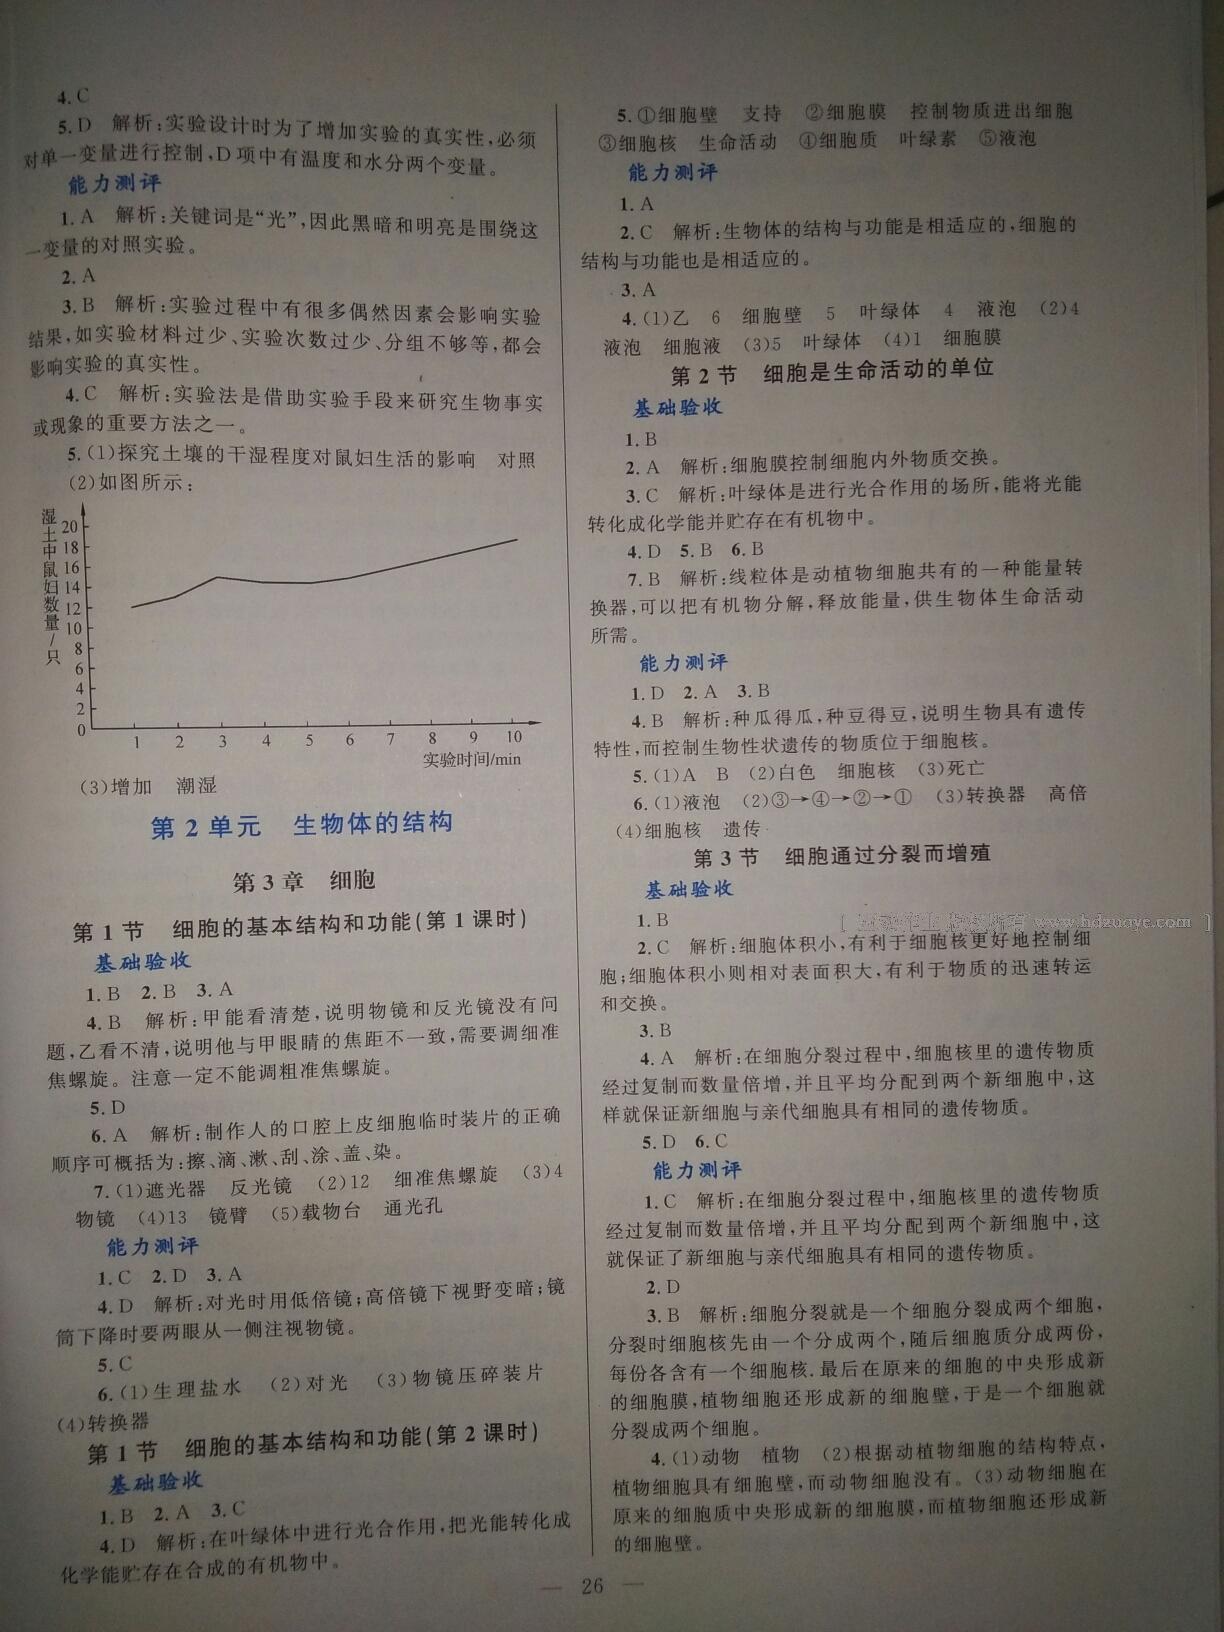 4. C
5. D 解析:实验设计时为了增加实验的真实性,必须
对单一变量进行控制,D项中有温度和水分两个变量。
能力测评
1. A 解析:关键词是“光”,因此黑暗和明亮是围绕这
一变量的对照实验。
2. A
3. B 解析:实验过程中有很多偶然因素会影响实验
结果,如实验材料过少、实验次数过少、分组不够等,都会
影响实验的真实性。
4. C 解析:实验法是借助实验手段来研究生物事实
或现象的重要方法之一。
5. (1)探究土壤的干湿程度对鼠妇生活的影响 对照
(2)如图所示:
湿土中鼠妇数量/只
20
18
16
14
12
10
8
6
4
2
0
1 2 3 4 5 6 7 8 9 10
实验时间/min
(3)增加 潮湿
第2单元 生物体的结构
第3章 细胞
第1节 细胞的基本结构和功能(第1课时)
基础验收
1. B 2. B 3. A
4. B 解析:甲能看清楚,说明物镜和反光镜没有问
题,乙看不清,说明他与甲眼睛的焦距不一致,需要调细准
焦螺旋。注意一定不能调粗准焦螺旋。
5. D
6. A 解析:制作人的口腔上皮细胞临时装片的正确
顺序可概括为:擦、滴、漱、刮、涂、盖、染。
7. (1)遮光器 反光镜 (2)12 细准焦螺旋 (3)4
物镜 (4)13 镜臂 (5)载物台 通光孔
能力测评
1. C 2. D 3. A
4. D 解析:对光时用低倍镜;高倍镜下视野变暗;镜
筒下降时要两眼从一侧注视物镜。
5. C
6. (1)生理盐水 (2)对光 (3)物镜压碎装片
(4)转换器
第1节 细胞的基本结构和功能(第2课时)
基础验收
1. B 2. A 3. C
4. D 解析:在叶绿体中进行光合作用,把光能转化成
化学能贮存在合成的有机物中。
5. ①细胞壁 支持 ②细胞膜 控制物质进出细胞
③细胞核 生命活动 ④细胞质 叶绿素 ⑤液泡
能力测评
1. A
2. C 解析:生物体的结构与功能是相适应的,细胞的
结构与功能也是相适应的。
3. A
4. (1)乙 6 细胞壁 5 叶绿体 4 液泡 (2)4
液泡 细胞液 (3)5 叶绿体 (4)1 细胞膜
第2节 细胞是生命活动的单位
基础验收
1. B
2. A 解析:细胞膜控制细胞内外物质交换。
3. C 解析:叶绿体是进行光合作用的场所,能将光能
转化成化学能并贮存在有机物中。
4. D 5. B 6. B
7. B 解析:线粒体是动植物细胞共有的一种能量转
换器,可以把有机物分解,释放能量,供生物体生命活动
所需。
能力测评
1. D 2. A 3. B
4. B 解析:种瓜得瓜,种豆得豆,说明生物具有遗传
特性,而控制生物性状遗传的物质位于细胞核。
5. (1)A B (2)白色 细胞核 (3)死亡
6. (1)液泡 (2)③→④→②→① (3)转换器 高倍
(4)细胞核 遗传
第3节 细胞通过分裂而增殖
基础验收
1. B
www.hdzuoye.com
2. C 解析:细胞体积小,有利于细胞核更好地控制细
胞;细胞体积小则相对表面积大,有利于物质的迅速转运
和交换。
3. B
4. A 解析:在细胞分裂过程中,细胞核里的遗传物质
经过复制而数量倍增,并且平均分配到两个新细胞中,这
样就保证新细胞与亲代细胞具有相同的遗传物质。
5. D 6. C
能力测评
1. C 解析:在细胞分裂过程中,细胞核里的遗传物质
经过复制而数量倍增,并且平均分配到两个新细胞中,这
就保证了新细胞与亲代细胞具有相同的遗传物质。
2. D
3. B 解析:细胞分裂就是一个细胞分裂成两个细胞,
分裂时细胞核先由一个分成两个,随后细胞质分成两份,
每份各含有一个细胞核.最后在原来的细胞的中央形成新
的细胞膜,植物细胞还形成新的细胞壁,于是一个细胞就
分裂成两个细胞。
4. (1)动物 植物 (2)根据动植物细胞的结构特点,
植物细胞具有细胞壁,而动物细胞没有。(3)动物细胞在
原来的细胞质中央形成新的细胞膜,而植物细胞还形成新
的细胞壁。
— 26 —